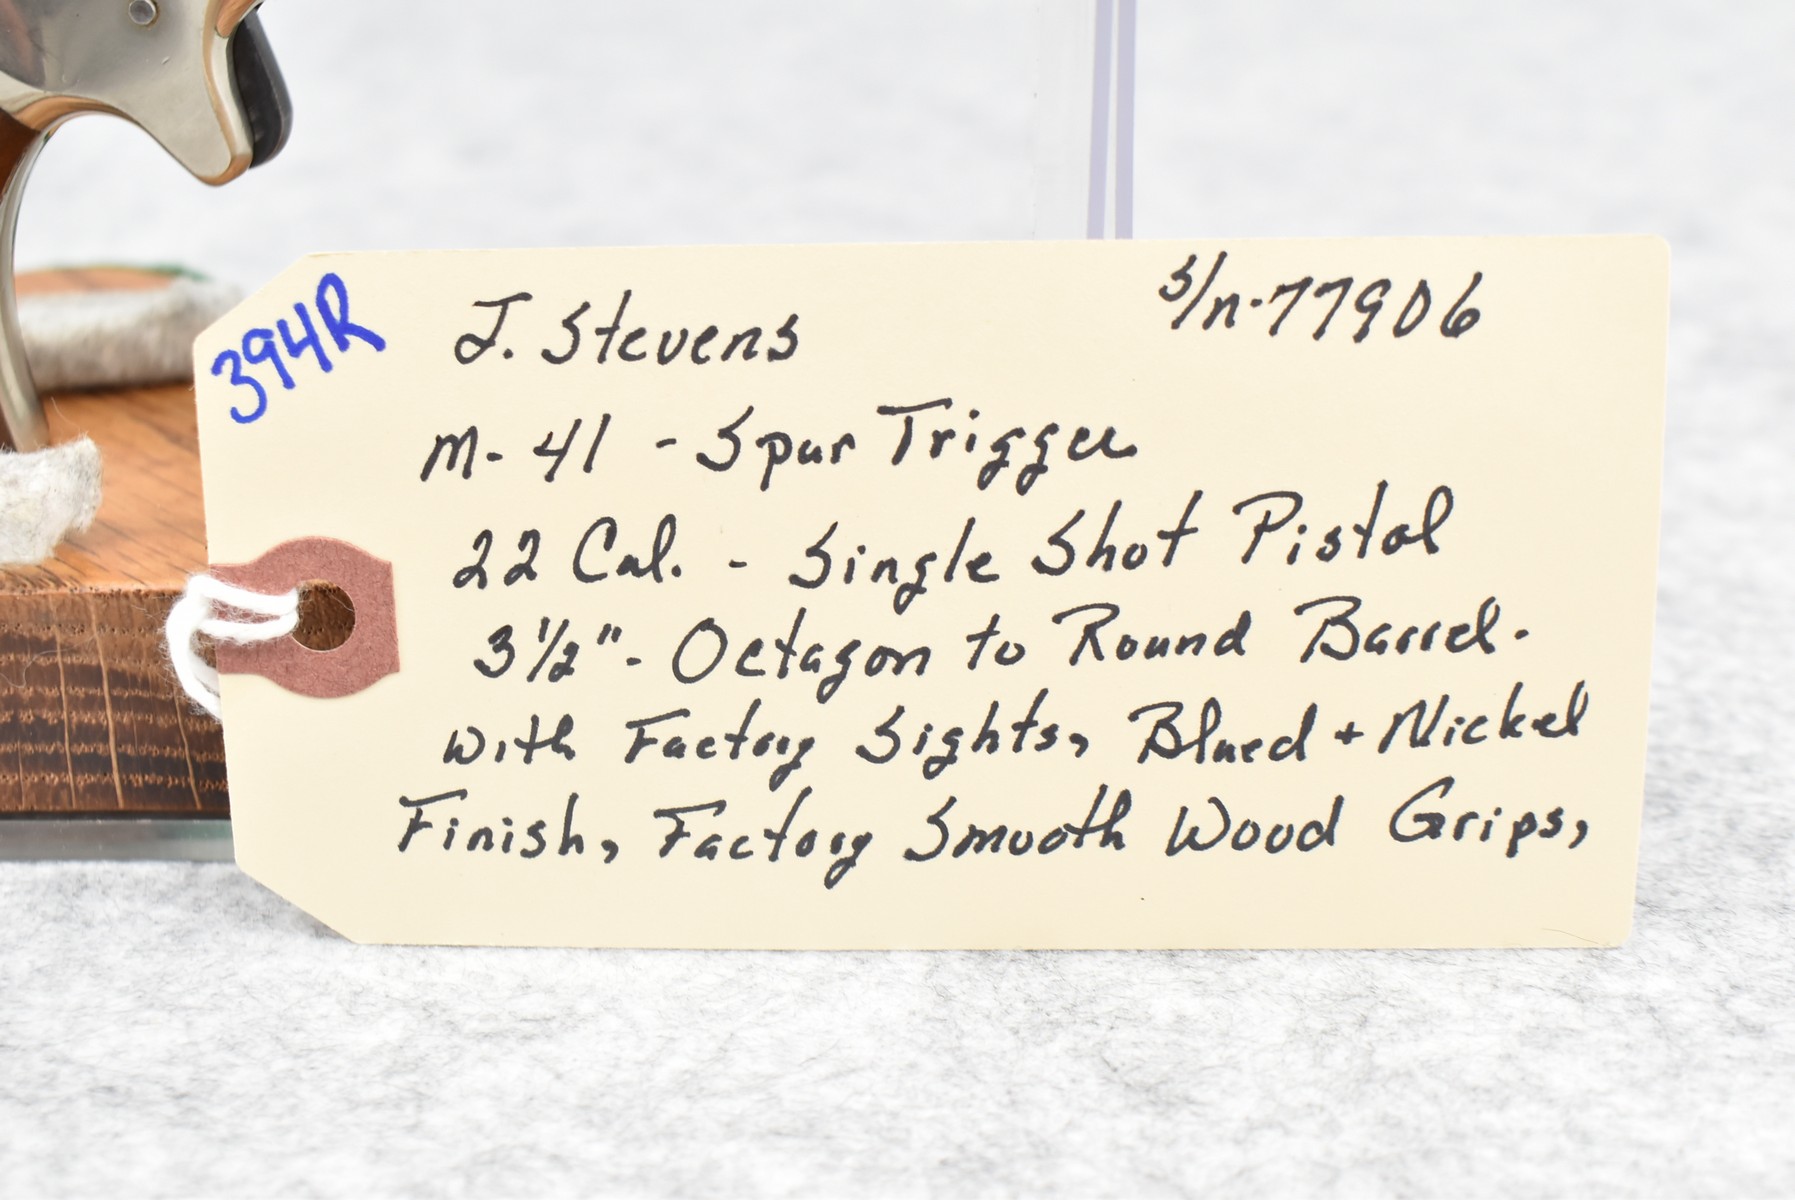 394R
J. Stevens S/n-77906
M-41 - Spur Trigger
22 Cal. - Single Shot Pistol
3 1/2" - Octagon to Round Barrel.
with Factory Sights, Blued + Nickel
Finish, Factory Smooth Wood Grips,